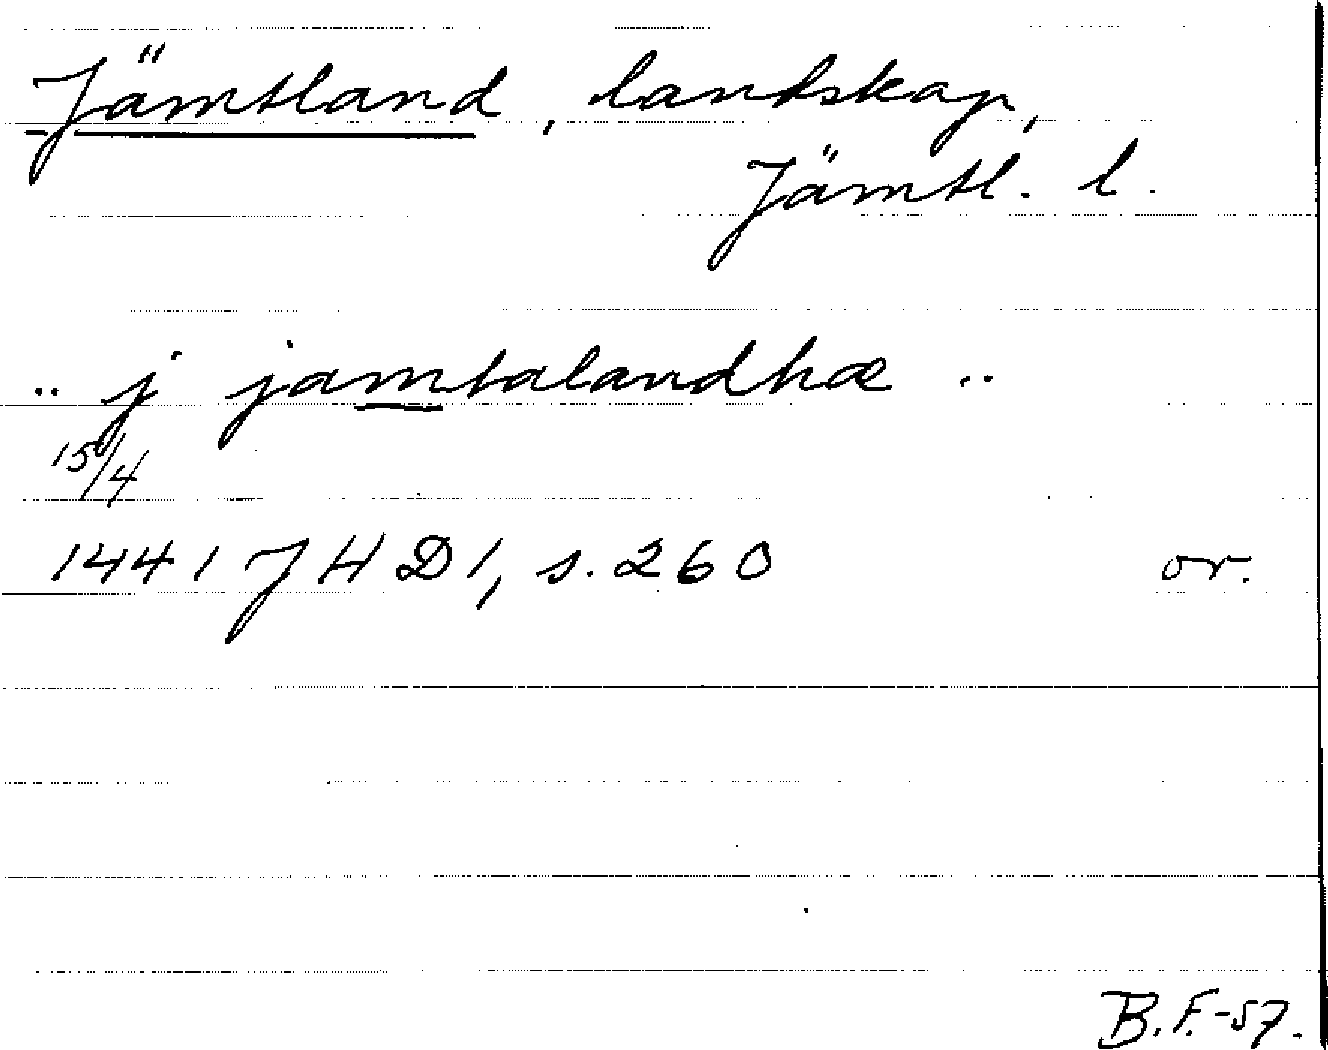 Jämtland, landskap,
Jämtl. l.
.. j jamtalandhæ ..
15/4
1441 JHD1, s. 260 or.
B.F.-57.